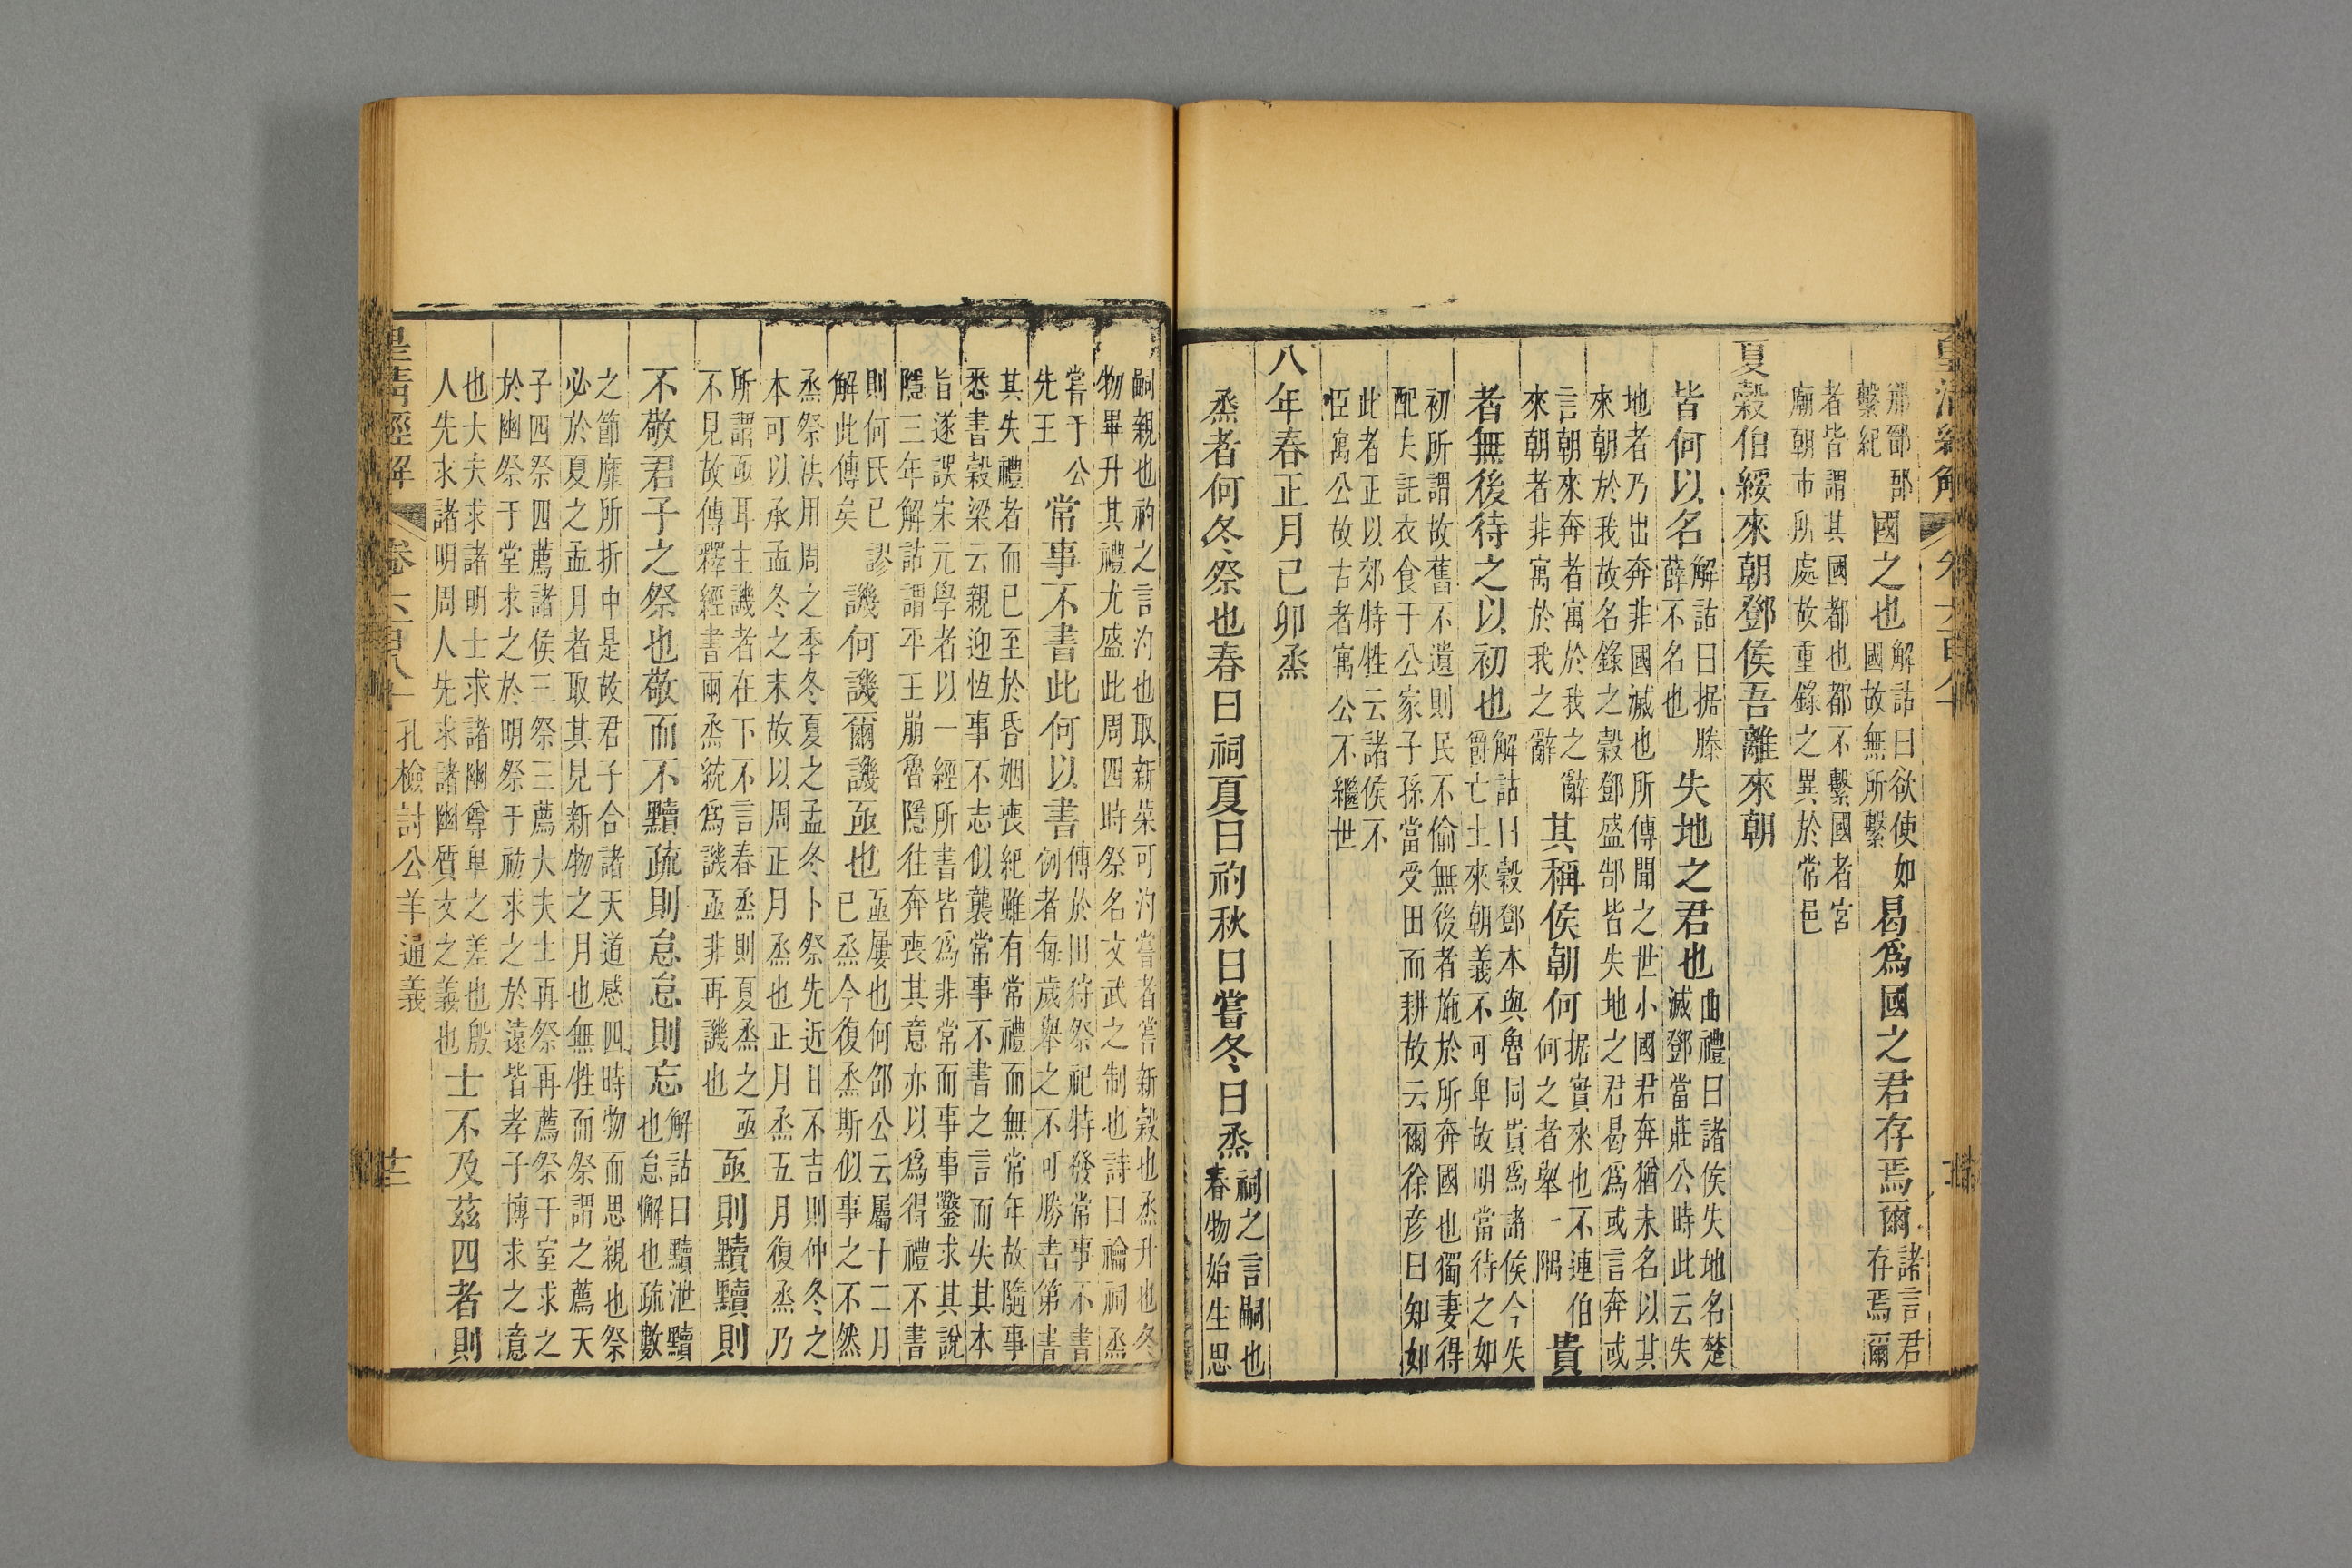 皇清經解 卷六百八十
郱鄑郚
繫紀
國之也
解詁曰欲使如
國故無所繫
曷爲國之君存焉爾
諸言君
存焉爾
者皆謂其國都也都不繫國者宮
廟朝市所處故重錄之異於常邑
夏穀伯綏來朝鄧侯吾離來朝
皆何以名
解詁曰据滕
薛不名也
失地之君也
曲禮曰諸侯失地名楚
滅鄧當莊公時此云失
地者乃出奔非國滅也所傳聞之世小國君奔猶未名以其
來朝於我故名錄之穀鄧盛郜皆失地之君曷爲或言奔或
言朝來奔者寓於我之辭
來朝者非寓於我之辭
其稱侯朝何
据實來也不連伯
何之者舉一隅
貴
者無後待之以初也
解詁曰穀鄧本與魯同貴爲諸侯今失
爵亡土來朝義不可卑故明當待之如
初所謂故舊不遺則民不偷無後者施於所奔國也獨妻得
配夫託衣食于公家子孫當受田而耕故云爾徐彥曰知如
此者正以郊特牲云諸侯不
臣寓公故古者寓公不繼世
八年春正月己卯烝
烝者何冬祭也春曰祠夏曰礿秋曰嘗冬曰烝
祠之言嗣也
春物始生思
嗣親也礿之言汋也取新菜可汋嘗者嘗新穀也烝升也冬
物畢升其禮尤盛此周四時祭名文武之制也詩曰禴祠烝
嘗于公
先王
常事不書此何以書
傳於田狩祭祀特發常事不書
例者每歲舉之不可勝書第書
其失禮者而已至於昏姻喪紀雖有常禮而無常年故隨事
悉書穀梁云親迎恆事不志似襲常事不書之言而失其本
旨遂誤宋元學者以一經所書皆爲非常而事事鑿求其說
隱三年解詁謂平王崩魯隱往奔喪其意亦以爲得禮不書
則何氏已謬
解此傳矣
譏何譏爾譏亟也
亟屢也何邵公云屬十二月
已烝今復烝斯似事之不然
烝祭法用周之季冬夏之孟冬卜祭先近日不吉則仲冬之
本可以承孟冬之末故以周正月烝也正月烝五月復烝乃
所謂亟耳主譏者在下不言春烝則夏烝之亟
不見故傳釋經書兩烝統爲譏亟非再譏也
亟則黷黷則
不敬君子之祭也敬而不黷疏則怠怠則忘
解詁曰黷泄黷
也怠懈也疏數
之節靡所折中是故君子合諸天道感四時物而思親也祭
必於夏之孟月者取其見新物之月也無牲而祭謂之薦天
子四祭四薦諸侯三祭三薦大夫士再祭再薦祭于室求之
於幽祭于堂求之於明祭于祊求之於遠皆孝子博求之意
也大夫求諸明士求諸幽尊卑之差也殷
人先求諸明周人先求諸幽質文之義也
士不及茲四者則
皇清經解 卷六百八十 孔檢討公羊通義 十三